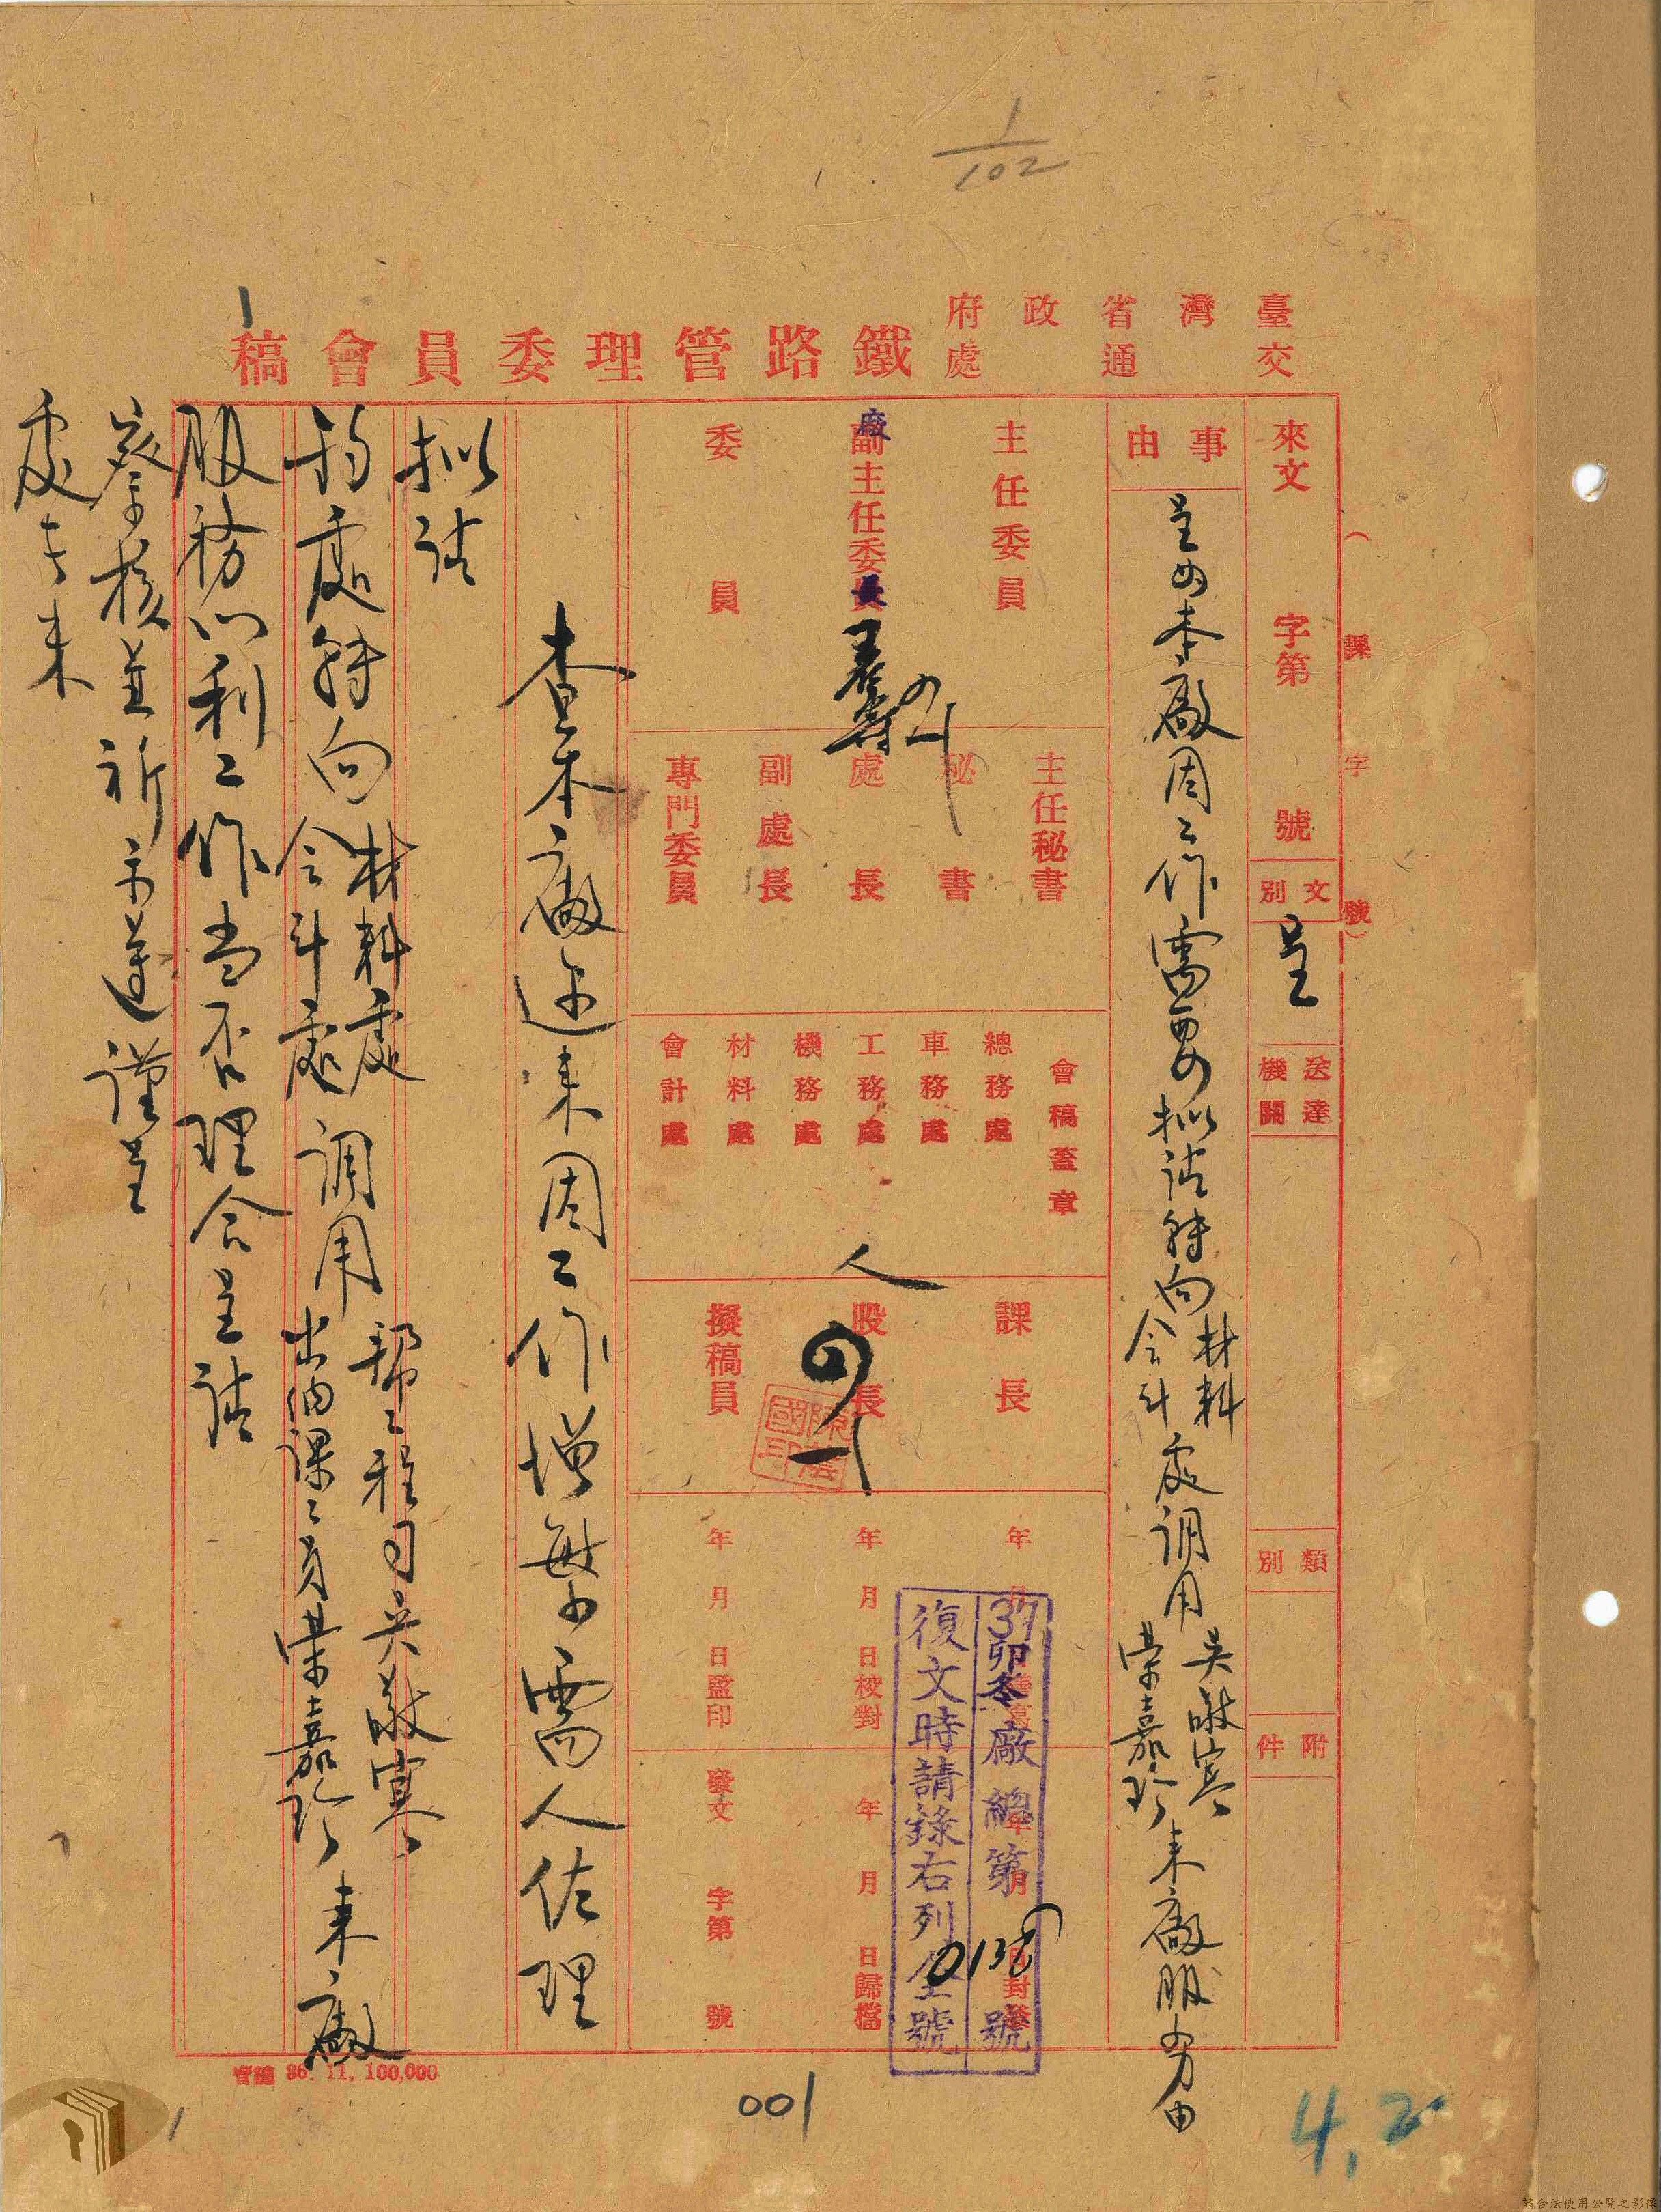 1/102
臺灣省政府
交通處
鐵路管理委員會稿
1
（課字號）
來文 字第 號
文別
呈
送達機關
類別
附件
事由
呈為本廠因工作需要擬請轉向材料會計處調用吳敬寰榮嘉珍來廠服務由
主任委員
廠
副主任委員
長
委員
主任秘書
秘書
處長
副處長
專門委員
會稿蓋章
總務處
車務處
工務處
機務處
材料處
會計處
人
課長
股長
擬稿員
年月
年月日校對
年月日監印
年月日歸檔
發文 字第 號
37卯冬廠總第0138號
復文時請錄右列全號
查本廠近來因工作增繁亟需人佐理
擬請
鈞處轉向材料處會計處調用幫工程司吳敬寰出納課課員榮嘉珍來廠
服務以利工作當否理合呈請
鑒核並祈示遵謹呈
處長朱
36. 11. 100,000
001
4.2